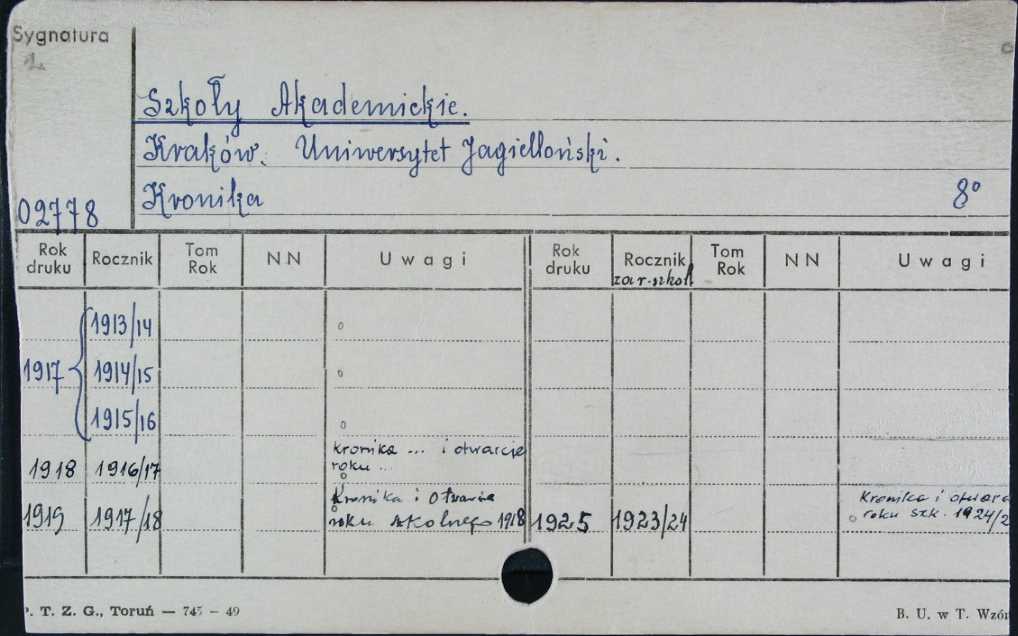 Sygnatura
Szkoły Akademickie.
Kraków. Uniwersytet Jagielloński.
Kronika 8°
02778
Rok druku Rocznik Tom Rok NN Uwagi Rok druku Rocznik zar. szkol Tom Rok NN Uwagi
1913/14
1917 1914/15
1915/16
1918 1916/17 Kronika ... i otwarcie
roku ...
1919 1917/18 Kronika i otwarcie
roku szkolnego 1918 1925 1923/24 Kronika i otwarc
roku szk. 1924/2
. T. Z. G., Toruń — 745 – 49 B. U. w T. Wzór